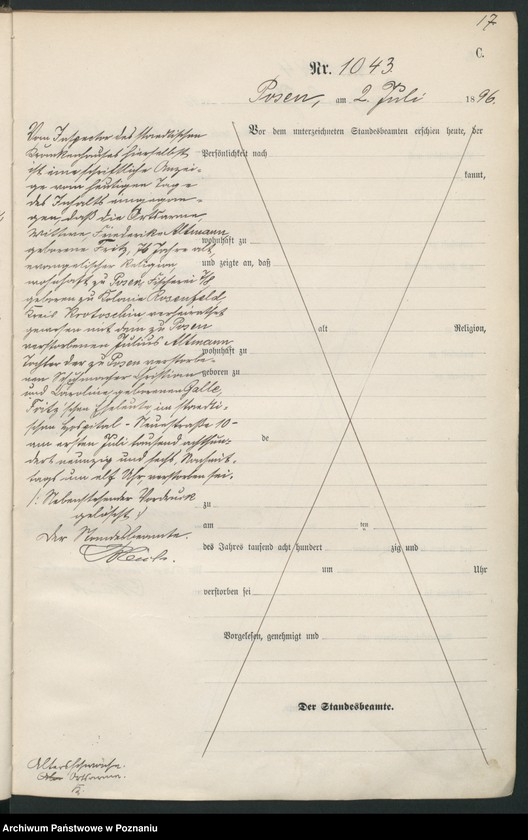 17
C.
Nr. 1043.
Posen, am 2. Juli 1896.
Vom Inspector des staedtischen
Krankenhauses hierselbst
ist eine schriftliche Anzei-
ge vom heutigen Tage
des Inhalts eingegan-
gen, daß die Ortsarme,
Wittwe Friederike Altmann
geborene Fritz, 76 Jahre alt,
evangelischer Religion,
wohnhaft zu Posen, Fischerei 7/8
geboren zu Kolonie Rosenfeld,
Kreis Krotoschin verheirathet
gewesen mit dem zu Posen
verstorbenen Julius Altmann
Tochter der zu Posen verstorbe-
nen Schuhmacher Christian
und Caroline geborenen Galle,
Fritz'schen Eheleute, im staedti-
schen Hospital - Neuestraße 10 -
am ersten Juli tausend achthun-
dert neunzig und sechs, Nachmit-
tags um elf Uhr verstorben sei.
/: Nebenstehender Vordruck
gelöscht :/
Der Standesbeamte.
Vor dem unterzeichneten Standesbeamten erschien heute, der
Persönlichkeit nach
kannt,
wohnhaft zu
und zeigte an, daß
alt Religion,
wohnhaft zu
geboren zu
de
zu
am ten
des Jahres tausend acht hundert zig und
um Uhr
verstorben sei
Vorgelesen, genehmigt und
Der Standesbeamte.
Altersschwäche.
Ortsarme.
Archiwum Państwowe w Poznaniu